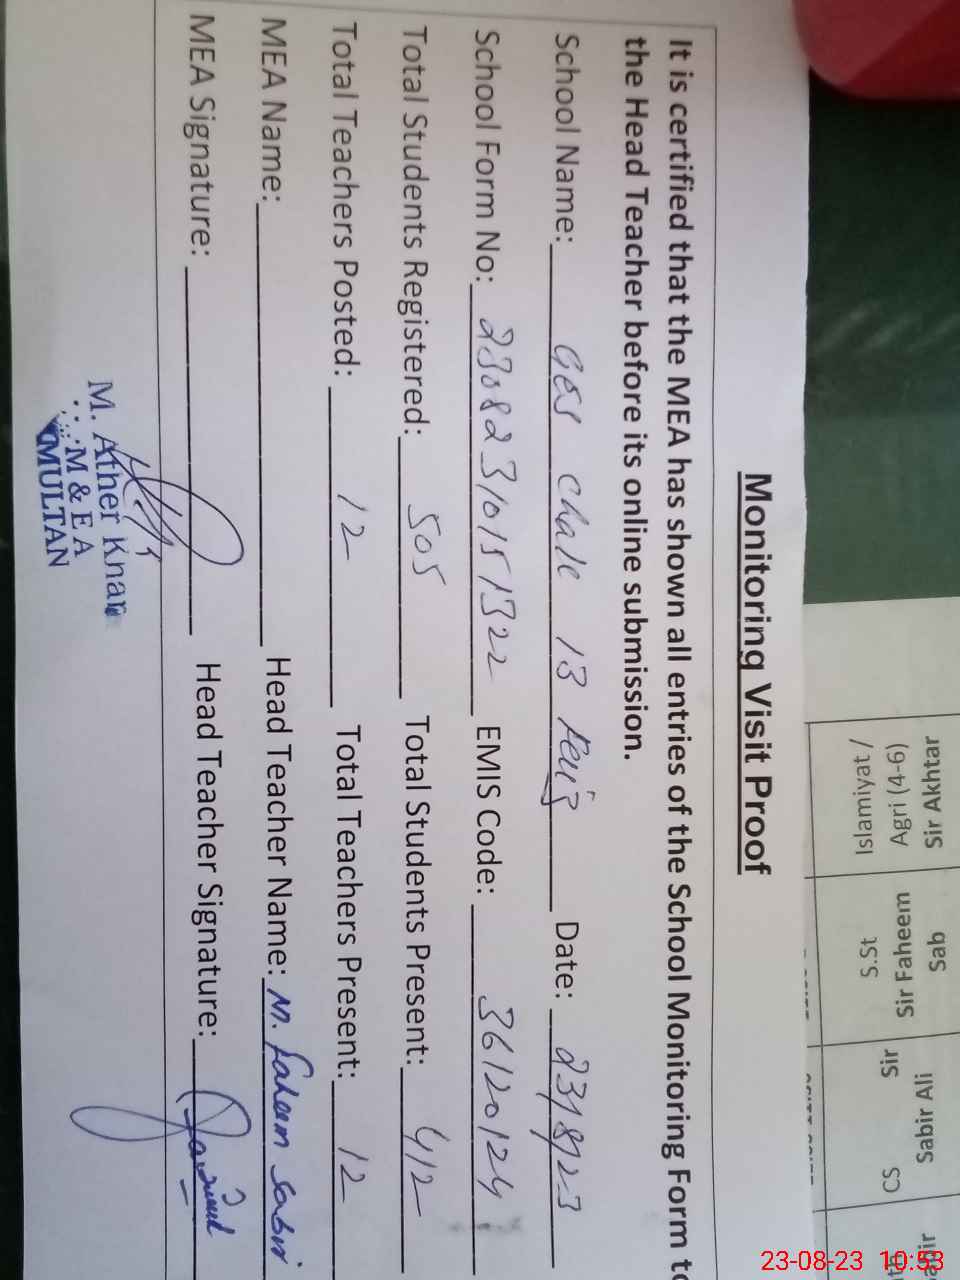 Monitoring Visit Proof
It is certified that the MEA has shown all entries of the School Monitoring Form to
the Head Teacher before its online submission.
School Name: GES Chak 13 Faiz Date: 23/8/23
School Form No: 230823101511322 EMIS Code: 36120124
Total Students Registered: 505 Total Students Present: 412
Total Teachers Posted: 12 Total Teachers Present: 12
MEA Name: Head Teacher Name: M. Faheem Sabir
MEA Signature: Head Teacher Signature:
M. Ather Khan
M & E A
MULTAN
Sir Akhtar
Agri (4-6)
Islamiyat /
Sab
Sir Faheem
S.St
Sabir Ali
CS Sir
23-08-23 10:53